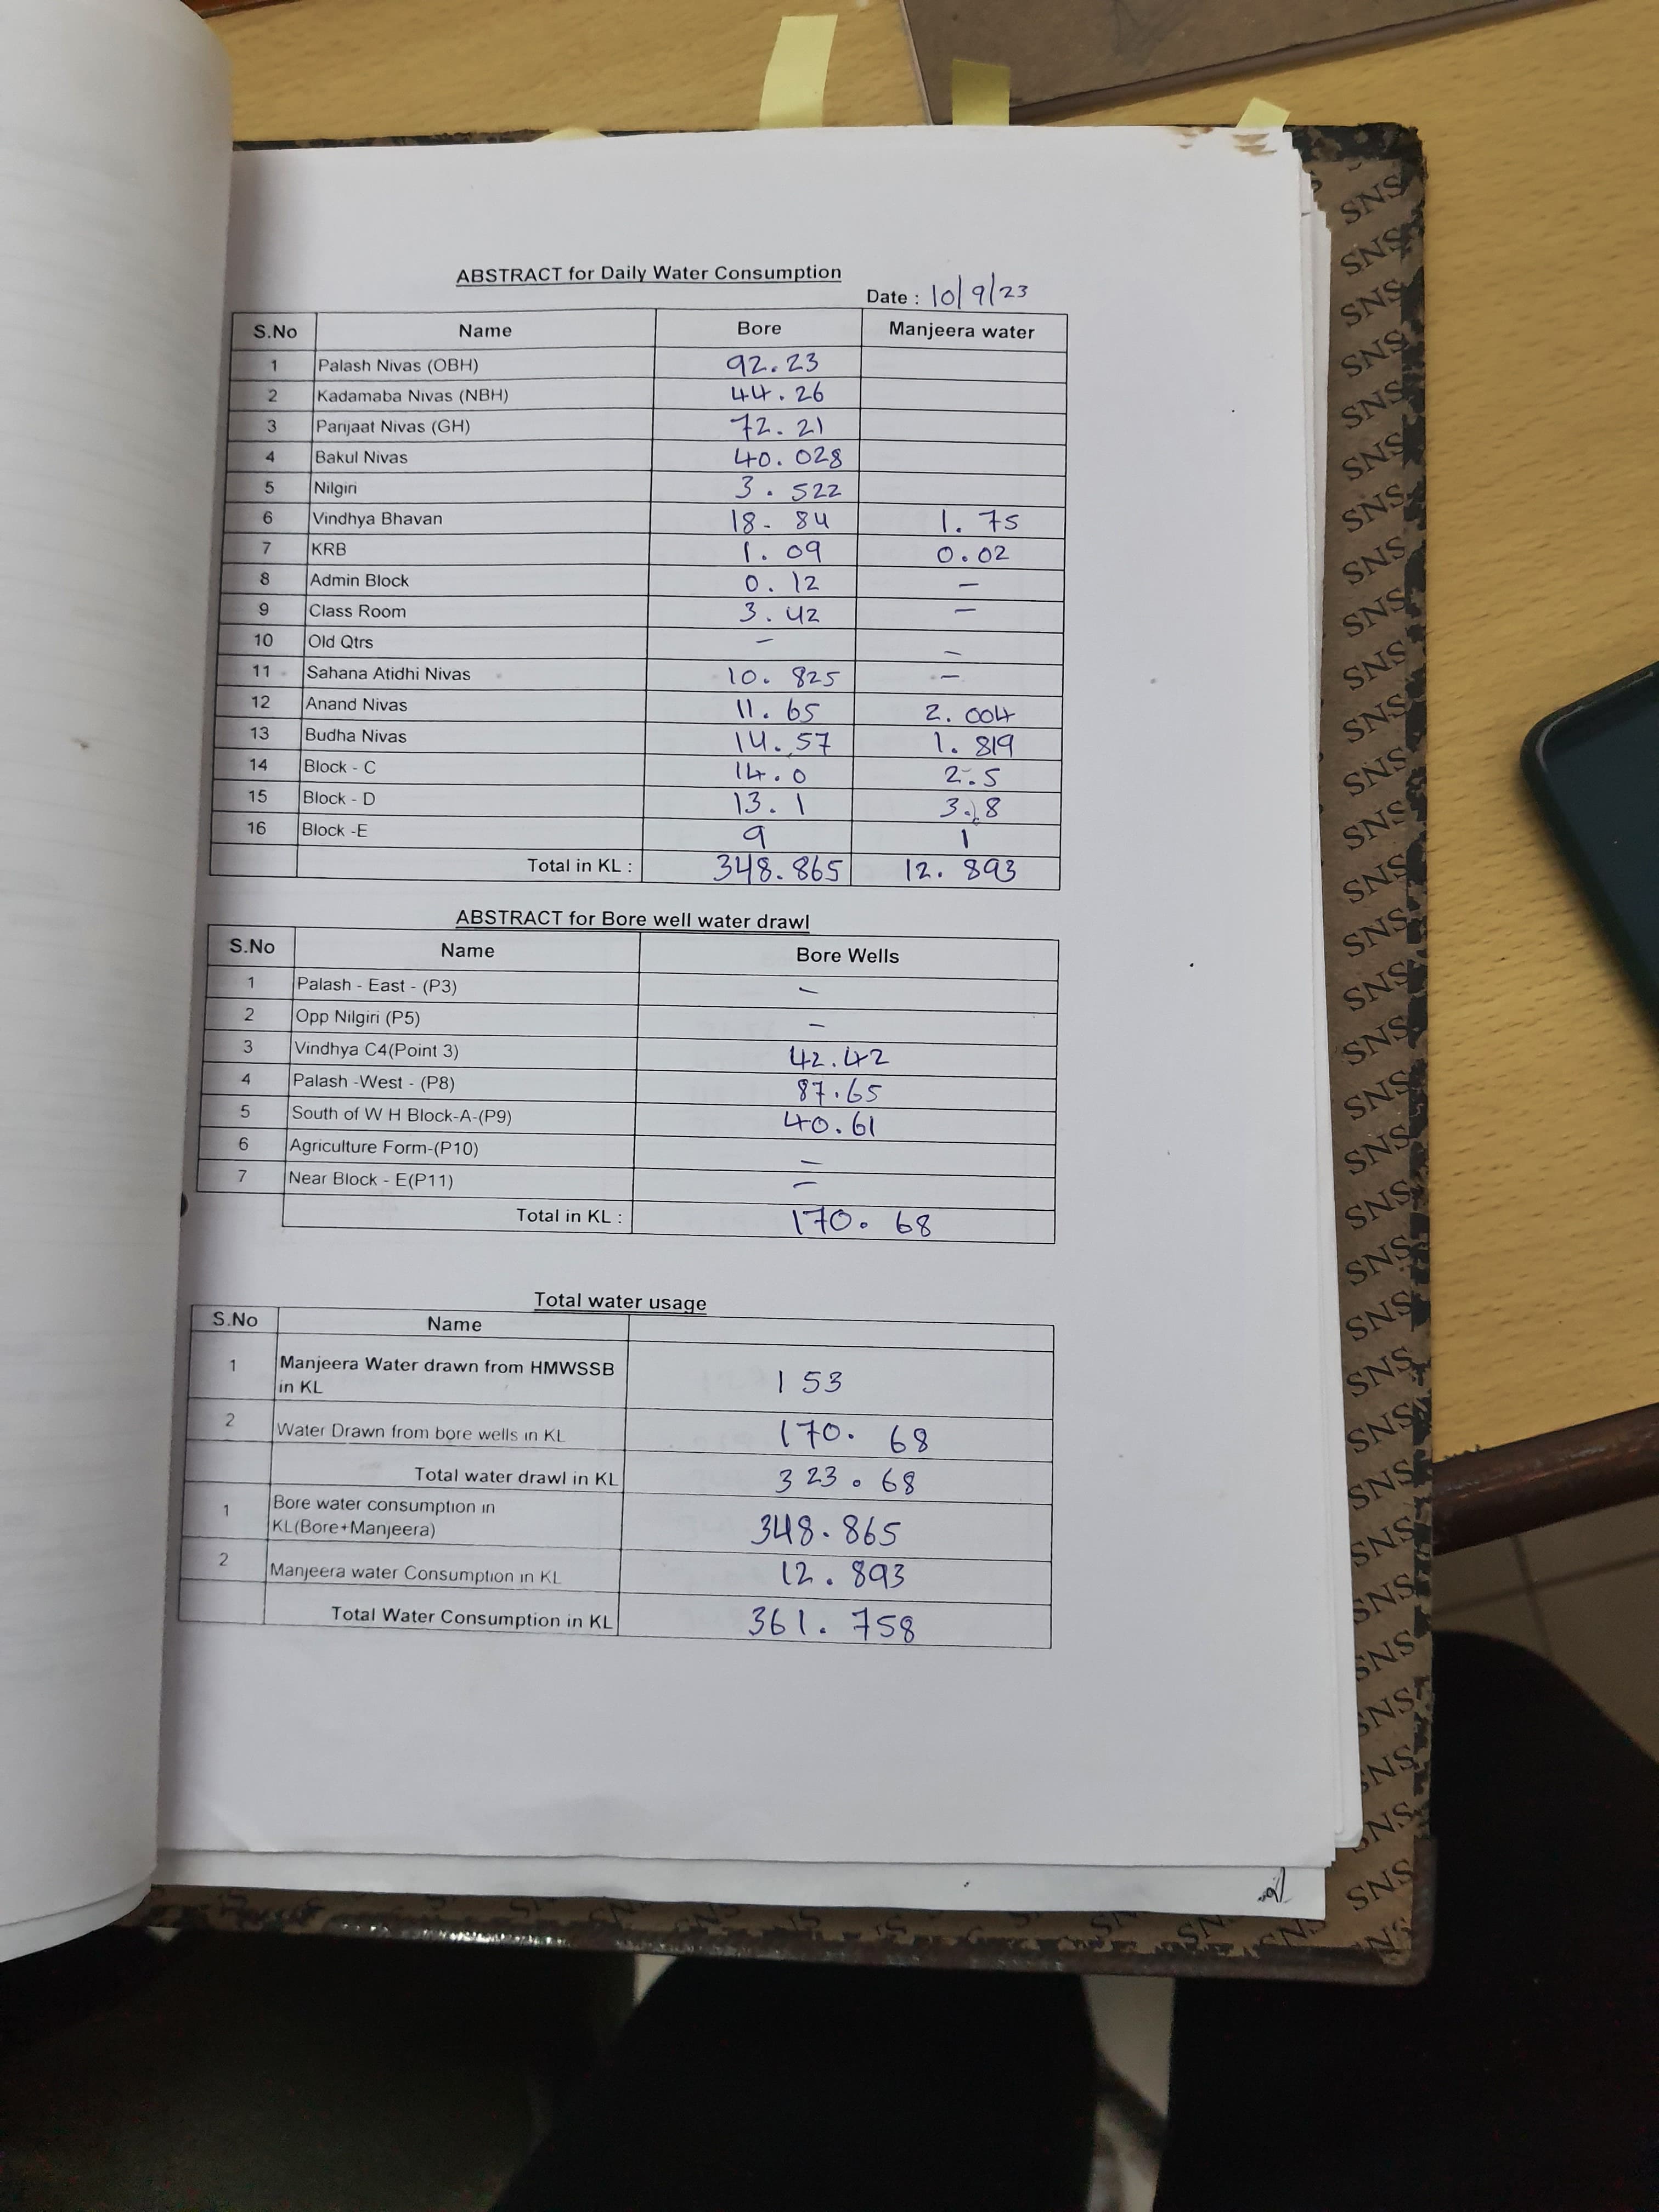 ABSTRACT for Daily Water Consumption
Date : 10/9/23
S.No Name Bore Manjeera water
1 Palash Nivas (OBH) 92.23
2 Kadamaba Nivas (NBH) 44.26
3 Parijaat Nivas (GH) 72.21
4 Bakul Nivas 40.028
5 Nilgiri 3.522
6 Vindhya Bhavan 18-84 1.75
7 KRB 1.09 0.02
8 Admin Block 0.12 -
9 Class Room 3.42 -
10 Old Qtrs - -
11 Sahana Atidhi Nivas 10.825 -
12 Anand Nivas 11.65 2.004
13 Budha Nivas 14.57 1.819
14 Block - C 14.0 2.5
15 Block - D 13.1 3.8
16 Block -E 9 1
Total in KL : 348.865 12.893
ABSTRACT for Bore well water drawl
S.No Name Bore Wells
1 Palash - East - (P3) -
2 Opp Nilgiri (P5) -
3 Vindhya C4(Point 3) 42.42
4 Palash -West - (P8) 87.65
5 South of W H Block-A-(P9) 40.61
6 Agriculture Form-(P10) -
7 Near Block - E(P11) -
Total in KL : 170.68
Total water usage
S.No Name
1 Manjeera Water drawn from HMWSSB
in KL 153
2 Water Drawn from bore wells in KL 170.68
Total water drawl in KL 323.68
1 Bore water consumption in
KL(Bore+Manjeera) 348.865
2 Manjeera water Consumption in KL 12.893
Total Water Consumption in KL 361.758
SNS